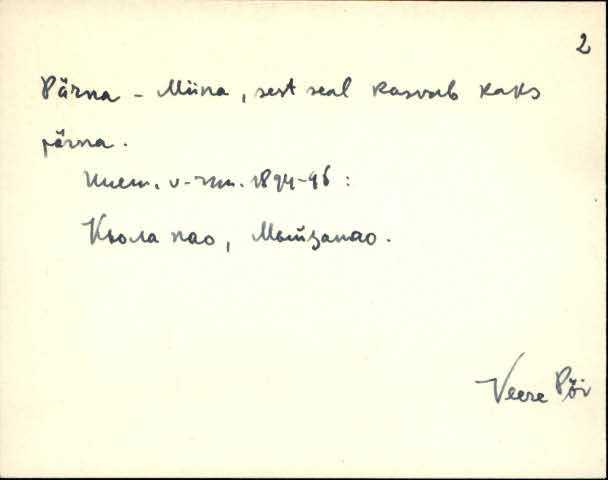 2
Pärna - Miina, sest seal kasvab kaks
pärna.
v-rm. 1894-96 :
Кюла пао, Мыйзапао.
Veere Pöi